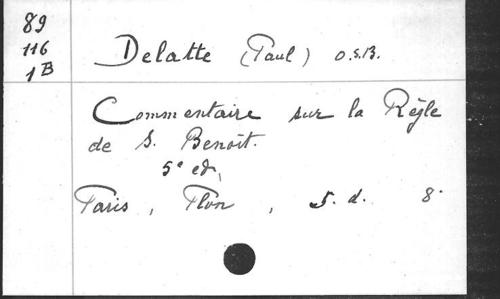 89
116
1 B
Delatte (Paul) O.S.B.
Commentaire sur la Règle
de S. Benoît.
5e ed,
Paris, Plon, s. d. 8°